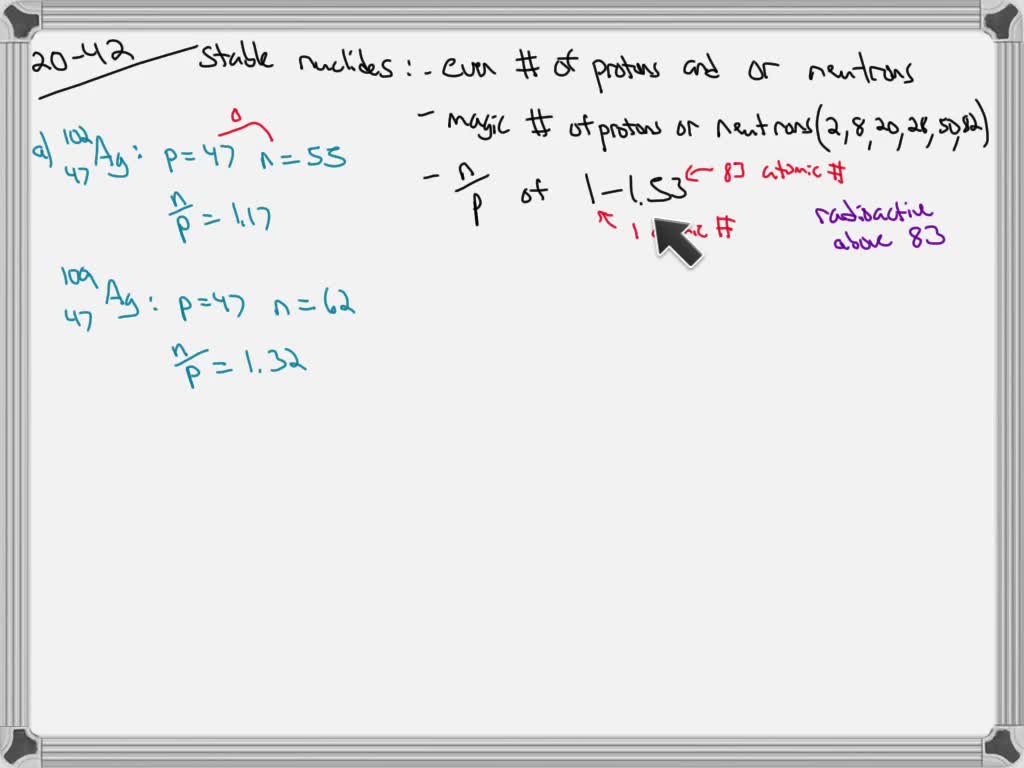 20-42 stable nuclides: - even # of protons and or neutrons
- magic # of protons or neutrons (2, 8, 20, 28, 50, 82)
- n/p of 1 - 1.53 ← 83 atomic #
1 #
radioactive
above 83
a) 102 47 Ag: p = 47 n = 55
o
n/p = 1.17
109 47 Ag: p = 47 n = 62
n/p = 1.32